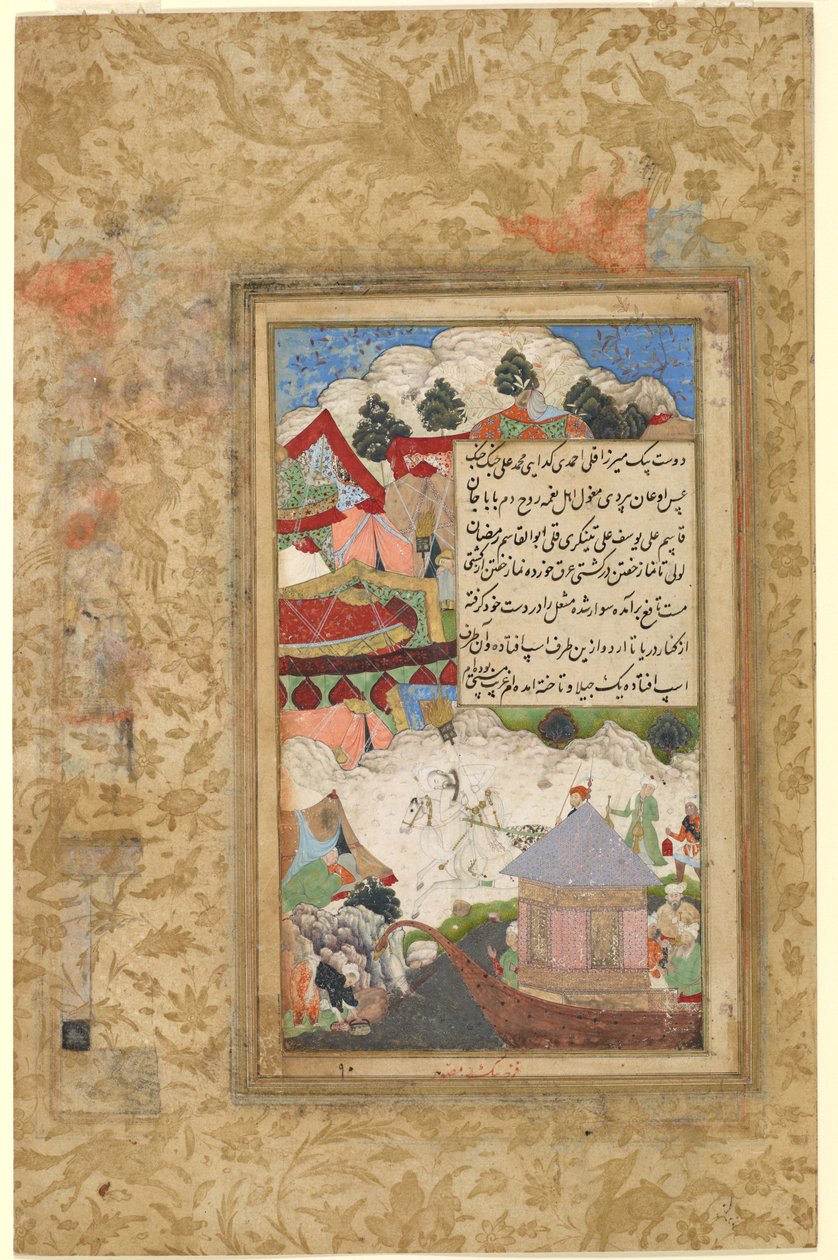 دوست بیک میرزا قلی احمدی کدایی محمد علی جنک جنک
عسس اوغان بردی مغول اهل نغمه روح دم بابا جان
قاسم علی یوسف علی تینکری قلی ابو القاسم رمضان
لولی تا نماز خفتن در کشتی عرق خورده نماز خفتن از کشتی
مست تافغ برآمده سوار شده مشعل را در دست خود کرفته
از کنار دریا تا اردو ازین طرف اسپ افتاده و آن طرف
اسپ افتاده یک جیلاو تاخته آمده ام غریب مست بوده ام
۹۰